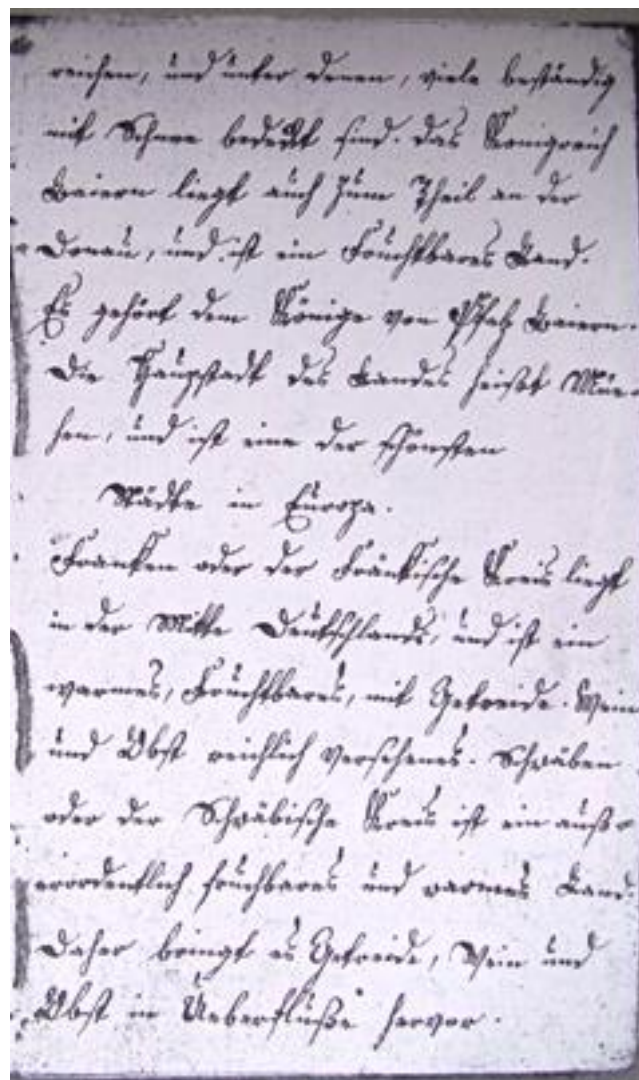 reichen, und unter denen, viele beständig
mit Schnee bedeckt sind. Das Königreich
Baiern liegt auch zum Theil an der
Donau, und ist ein Fruchtbares Land.
Es gehört dem Könige von Pfalz Baiern.
Die Hauptstadt des Landes heißet Mün-
chen, und ist eine der schönsten
Städte in Europa.
Franken oder der Fränkische Kreis liegt
in der Mitte Deutschlands, und ist ein
warmes, Fruchtbares, mit Getreide. Wein
und Obst reichlich versehenes. Schwaben
oder der Schwäbische Kreis ist ein auße
rordentlich fruchbares und warmes Land.
Daher bringt es Getreide, Wein und
Obst in Ueberfluße hervor.